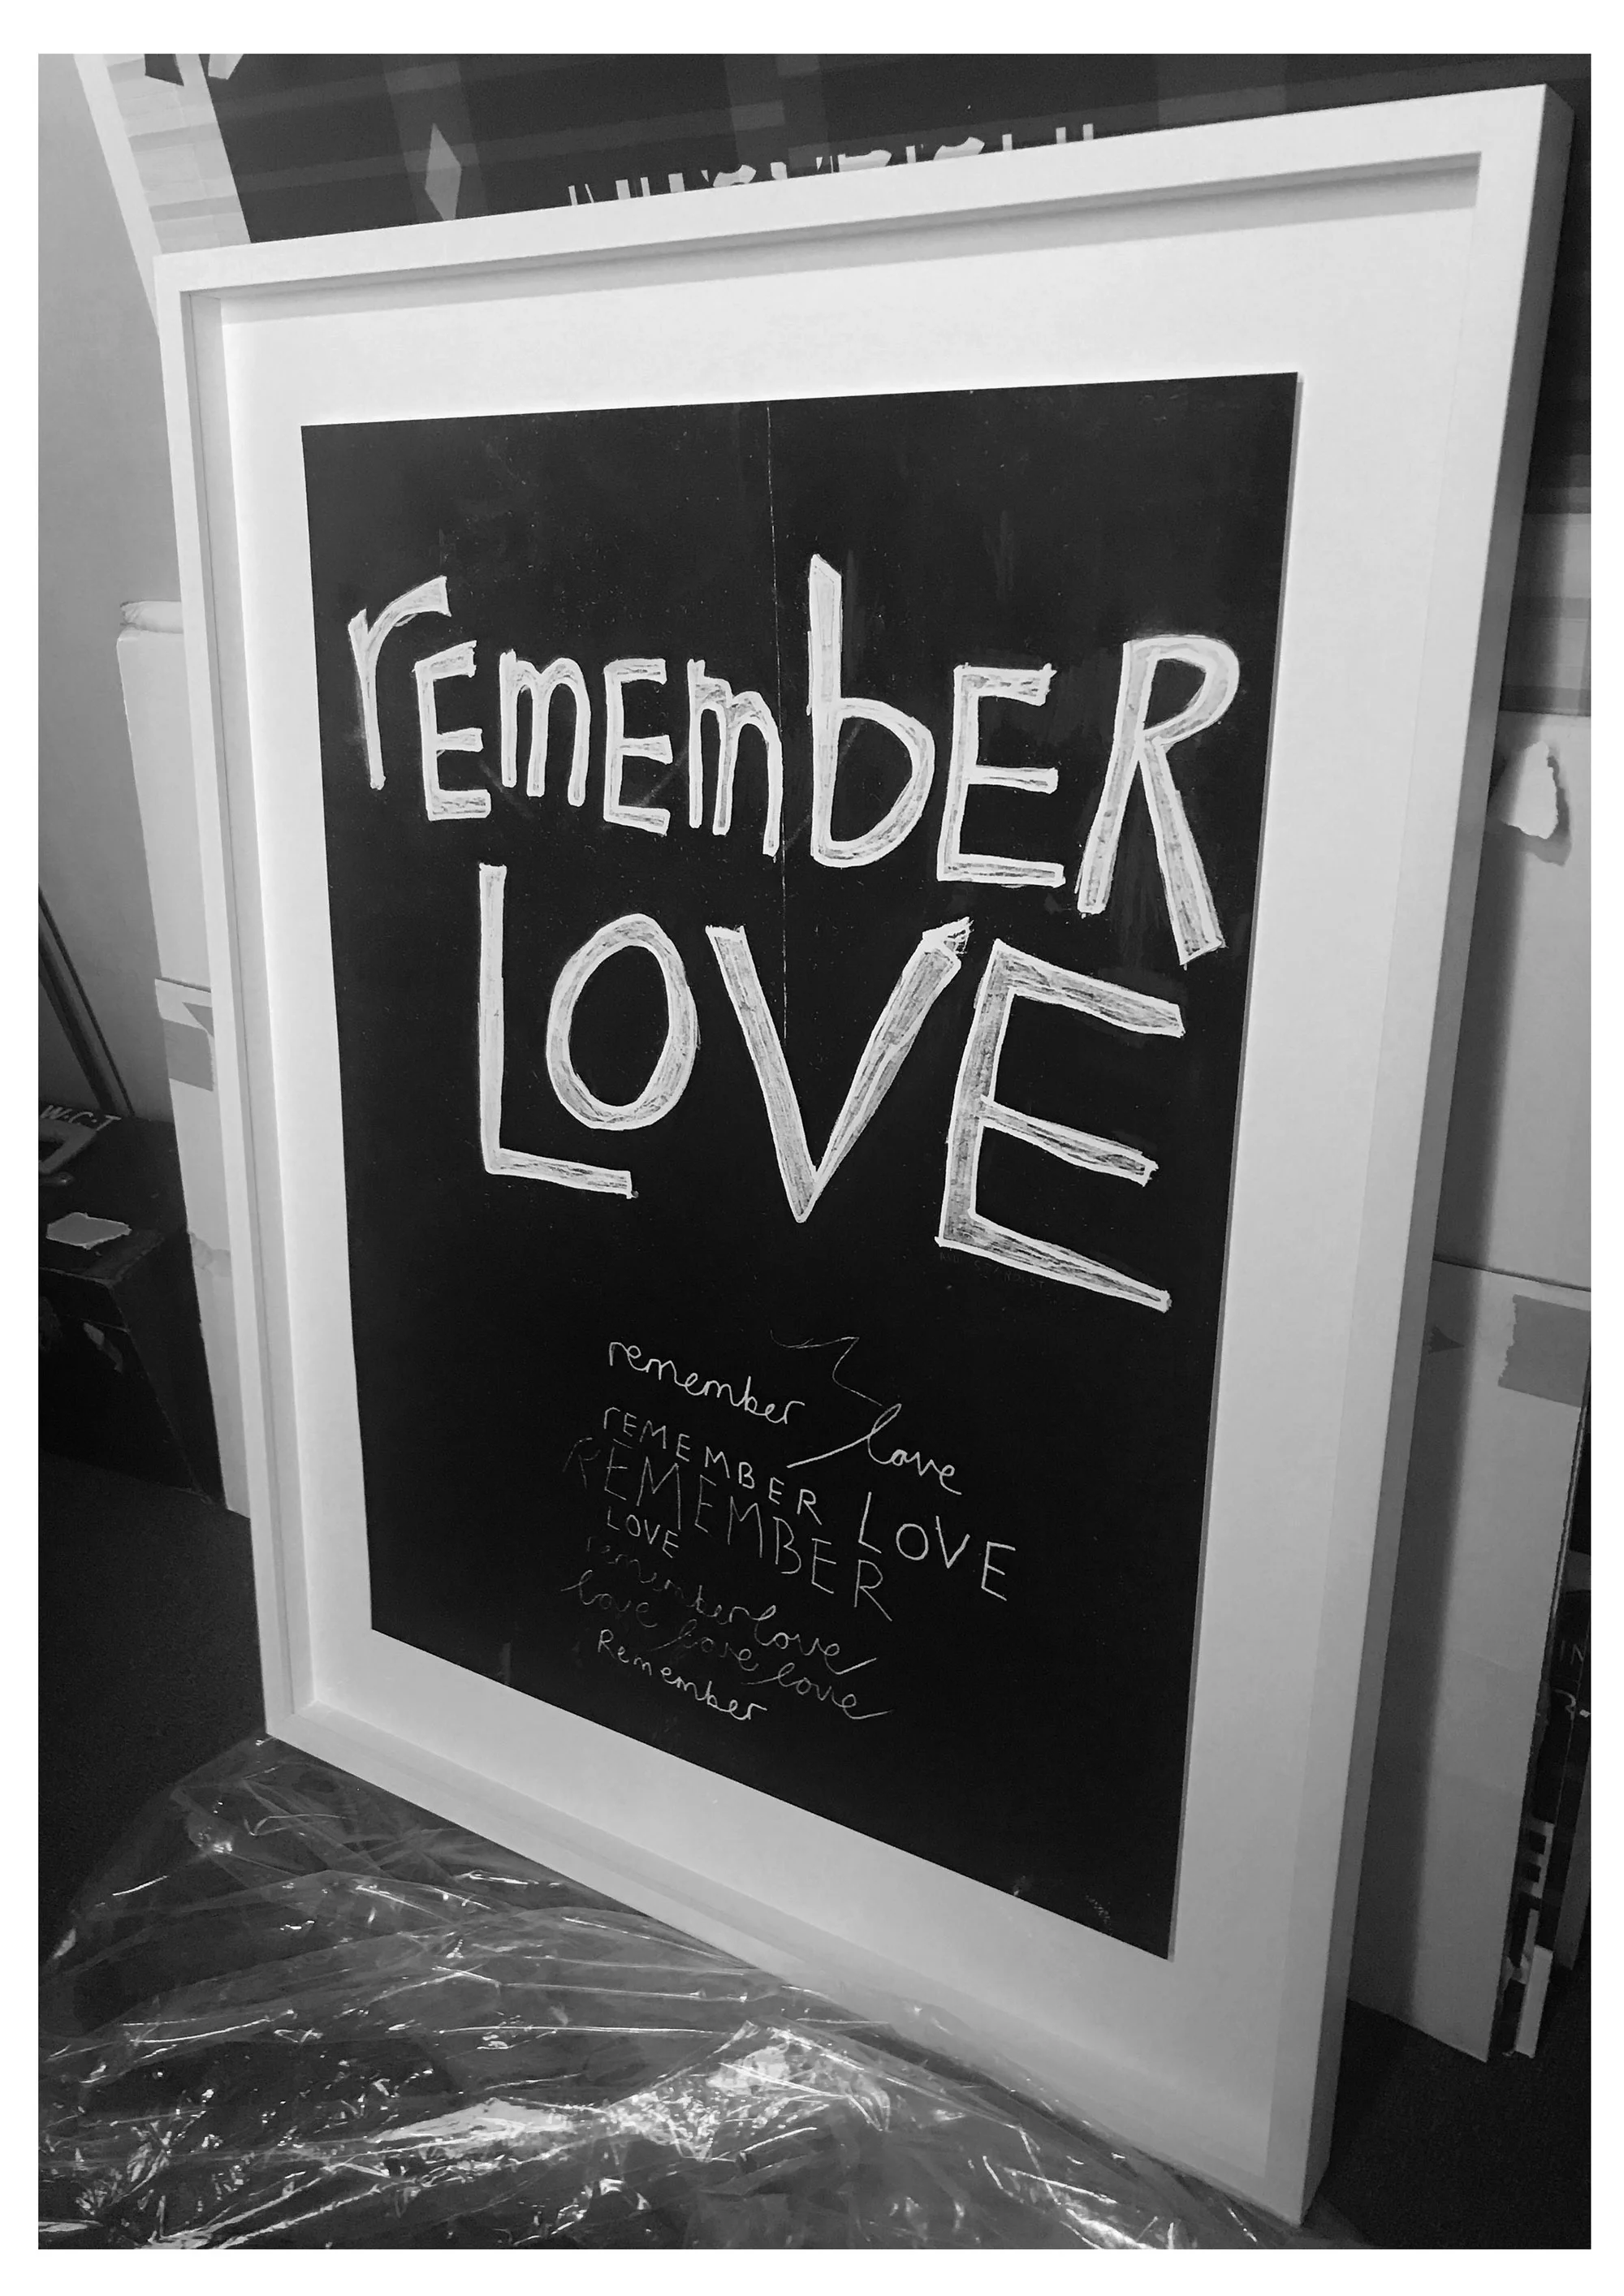 rEmEmbER
LOVE
remember love
rEMEMBER LOVE
REMEMBER
LOVE
remember love
love love love
Remember
W.C.T
IN